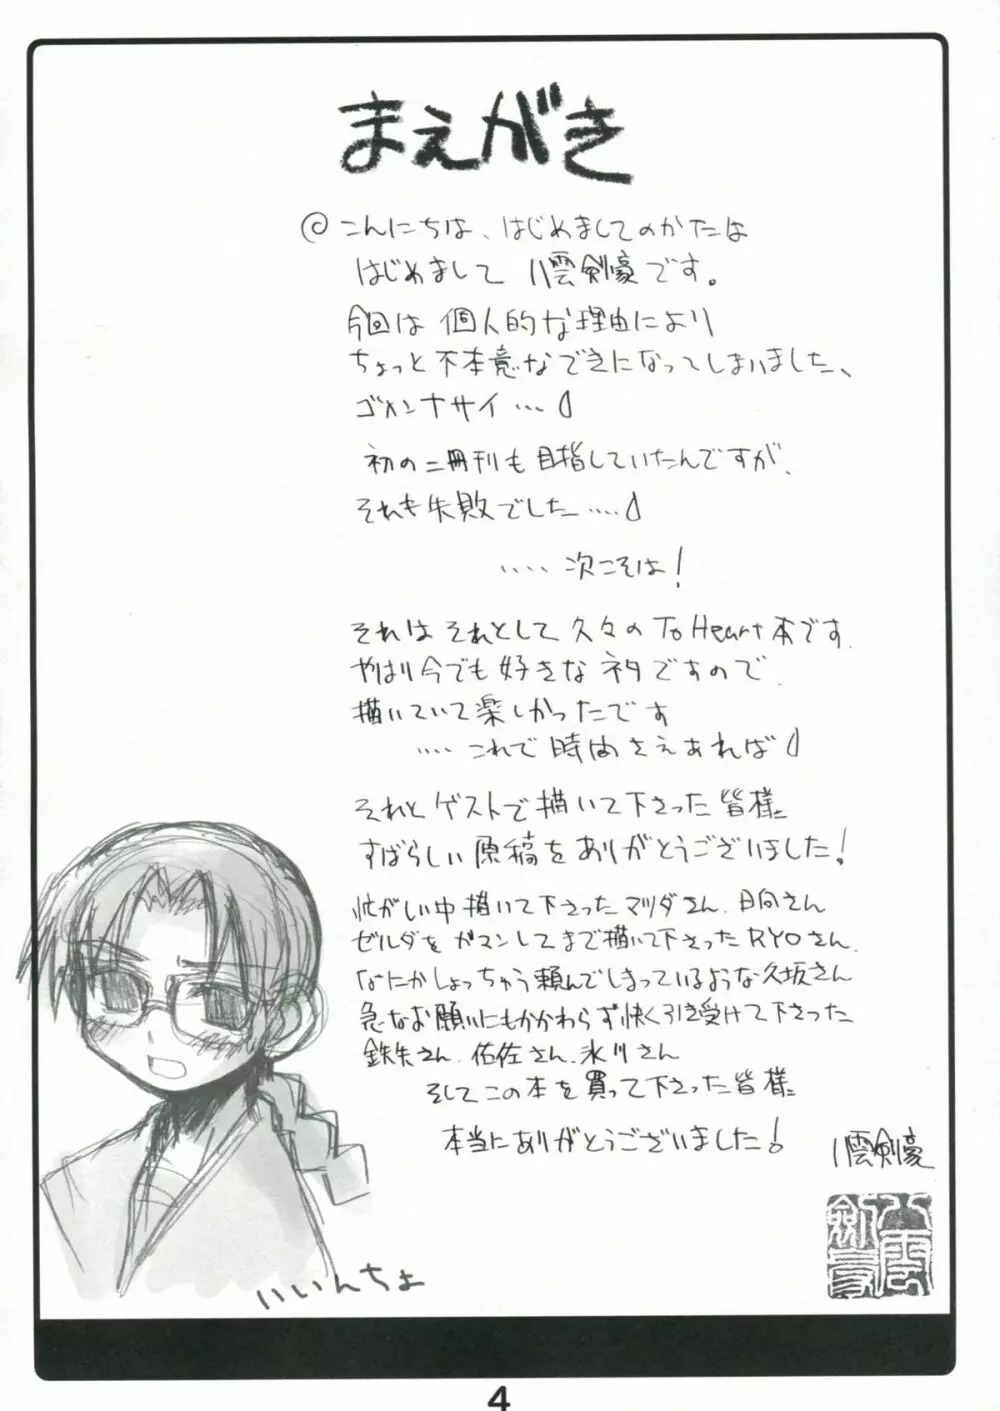 まえがき
◎こんにちは、はじめましてのかたは
はじめまして 八雲剣豪です。
今回は個人的な理由により
ちょっと不本意なできになってしまいました、
ゴメンナサイ…
初の二冊刊も目指していたんですが、
それも失敗でした‥‥
‥‥次こそは!
それはそれとして久々のTo Heart本です。
やはり今でも好きなネタですので、
描いていて楽しかったです
‥‥これで時間さえあれば
それとゲストで描いて下さった皆様
すばらしい原稿をありがとうございました!
忙がしい中描いて下さったマツダさん、日向さん
ゼルダをガマンしてまで描いて下さったRYOさん、
なにかしょっちゅう頼んでしまっているような久坂さん
急なお願いにもかかわらず快く引き受けて下さった
鉄矢さん、佑佐さん、氷川さん
そしてこの本を買って下さった皆様
本当にありがとうございました!
八雲剣豪
八雲剣豪
いいんちょ
4